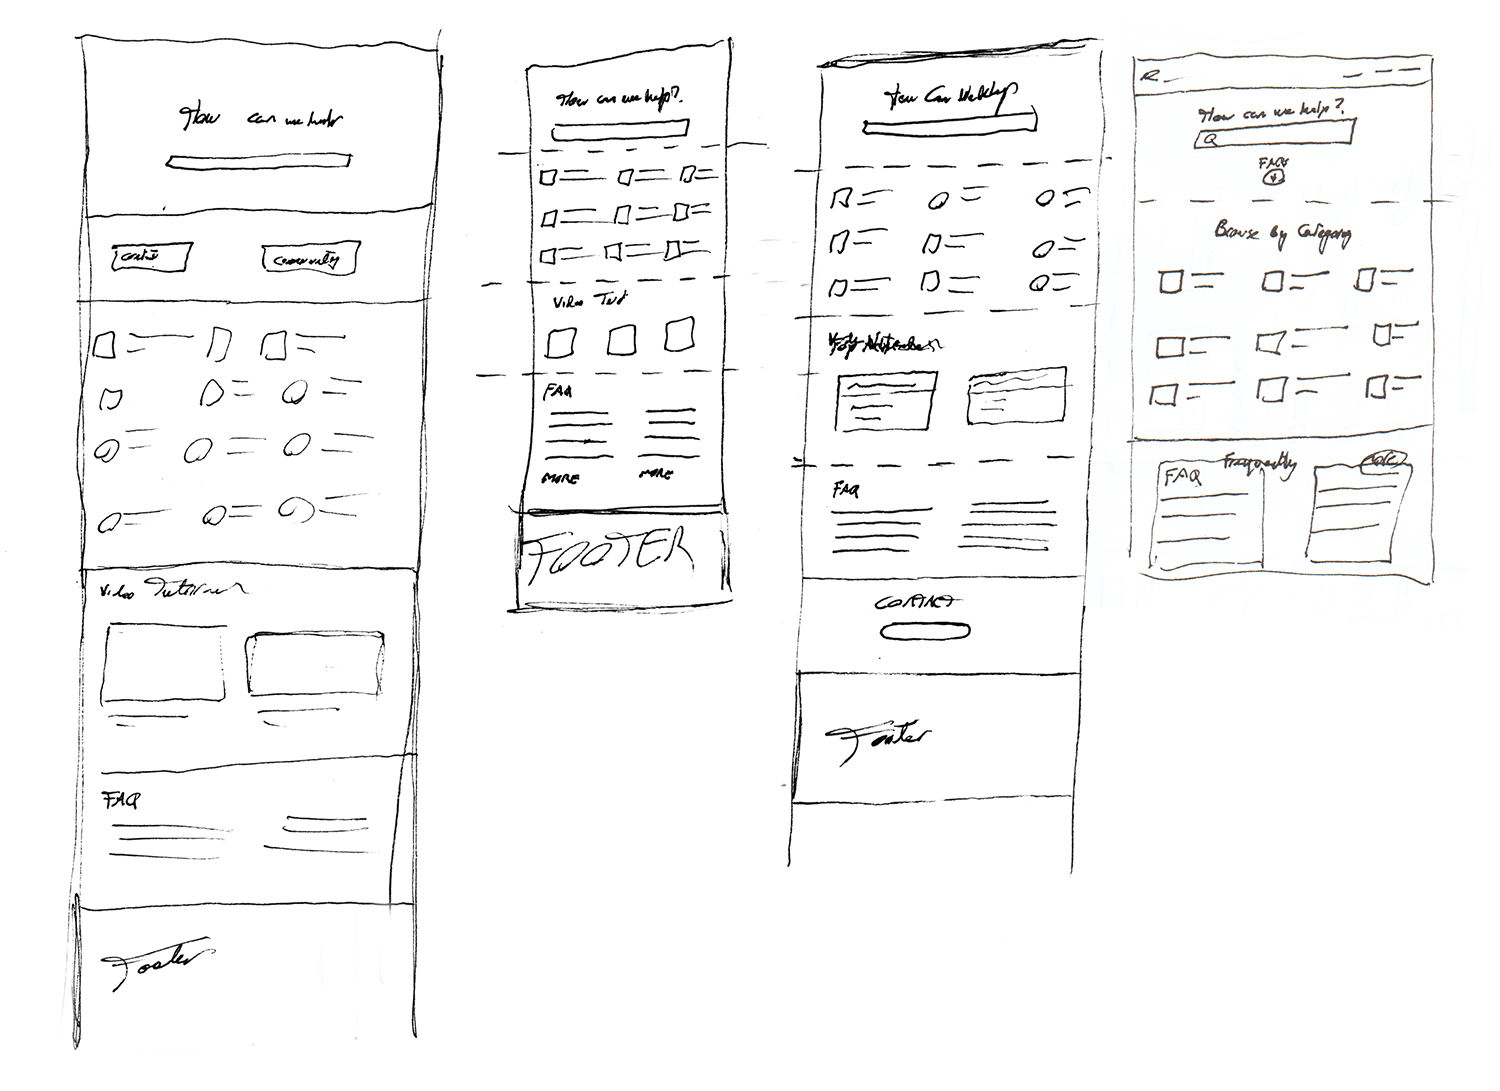 How can we help
Community
Video Tutorials
FAQ
Footer
How can we help?
Video Tut
FAQ
MORE MORE
FOOTER
How Can We Help
FAQ
CONTACT
Footer
How can we help?
FAQ
Browse by Category
FAQ Frequently